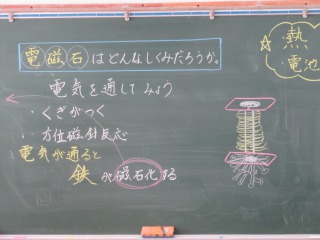 電磁石はどんなしくみだろうか。
電気を通してみよう
・くぎがつく
・方位磁針反応
電気が通ると
鉄が磁石化する
☆熱
・電池